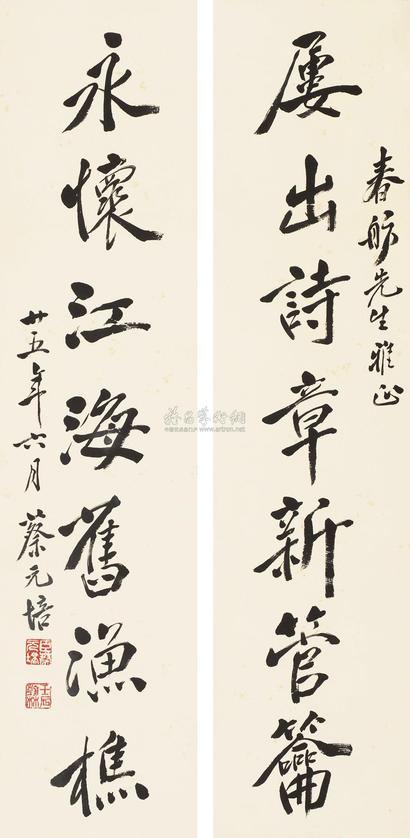 春舫先生雅正
屢出詩章新管籥
永懷江海舊漁樵
廿五年六月
蔡元培